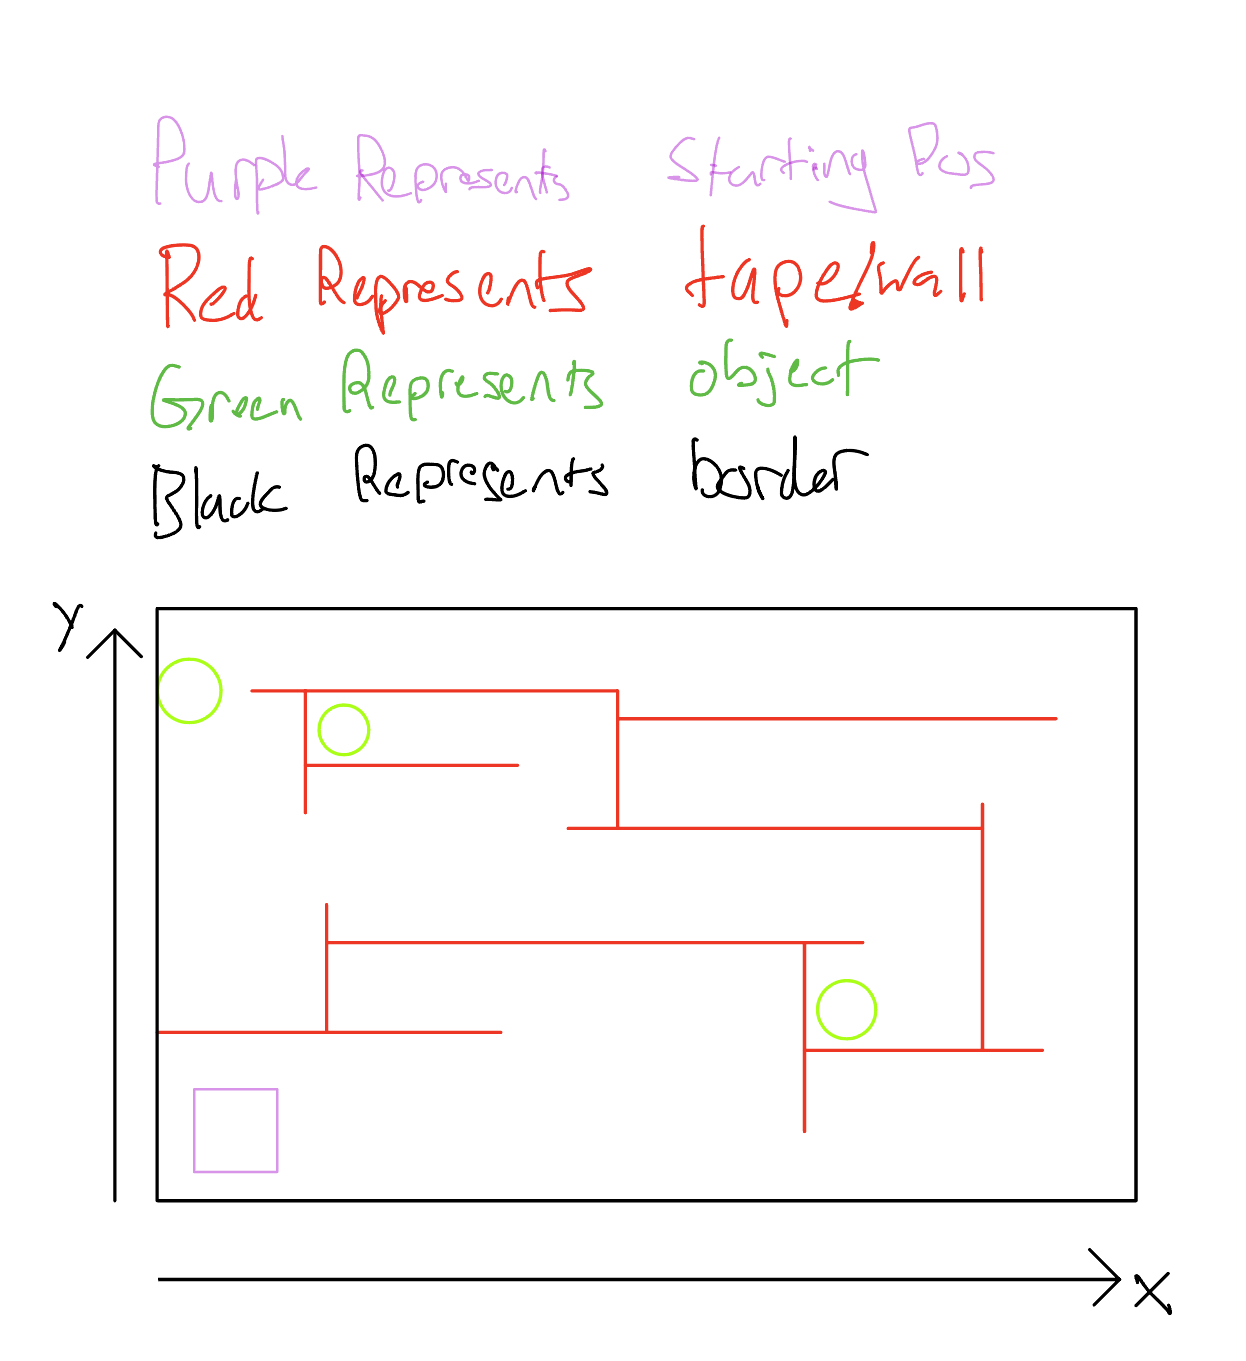 Purple Represents Starting Pos
Red Represents tape/wall
Green Represents object
Black Represents border
y
x